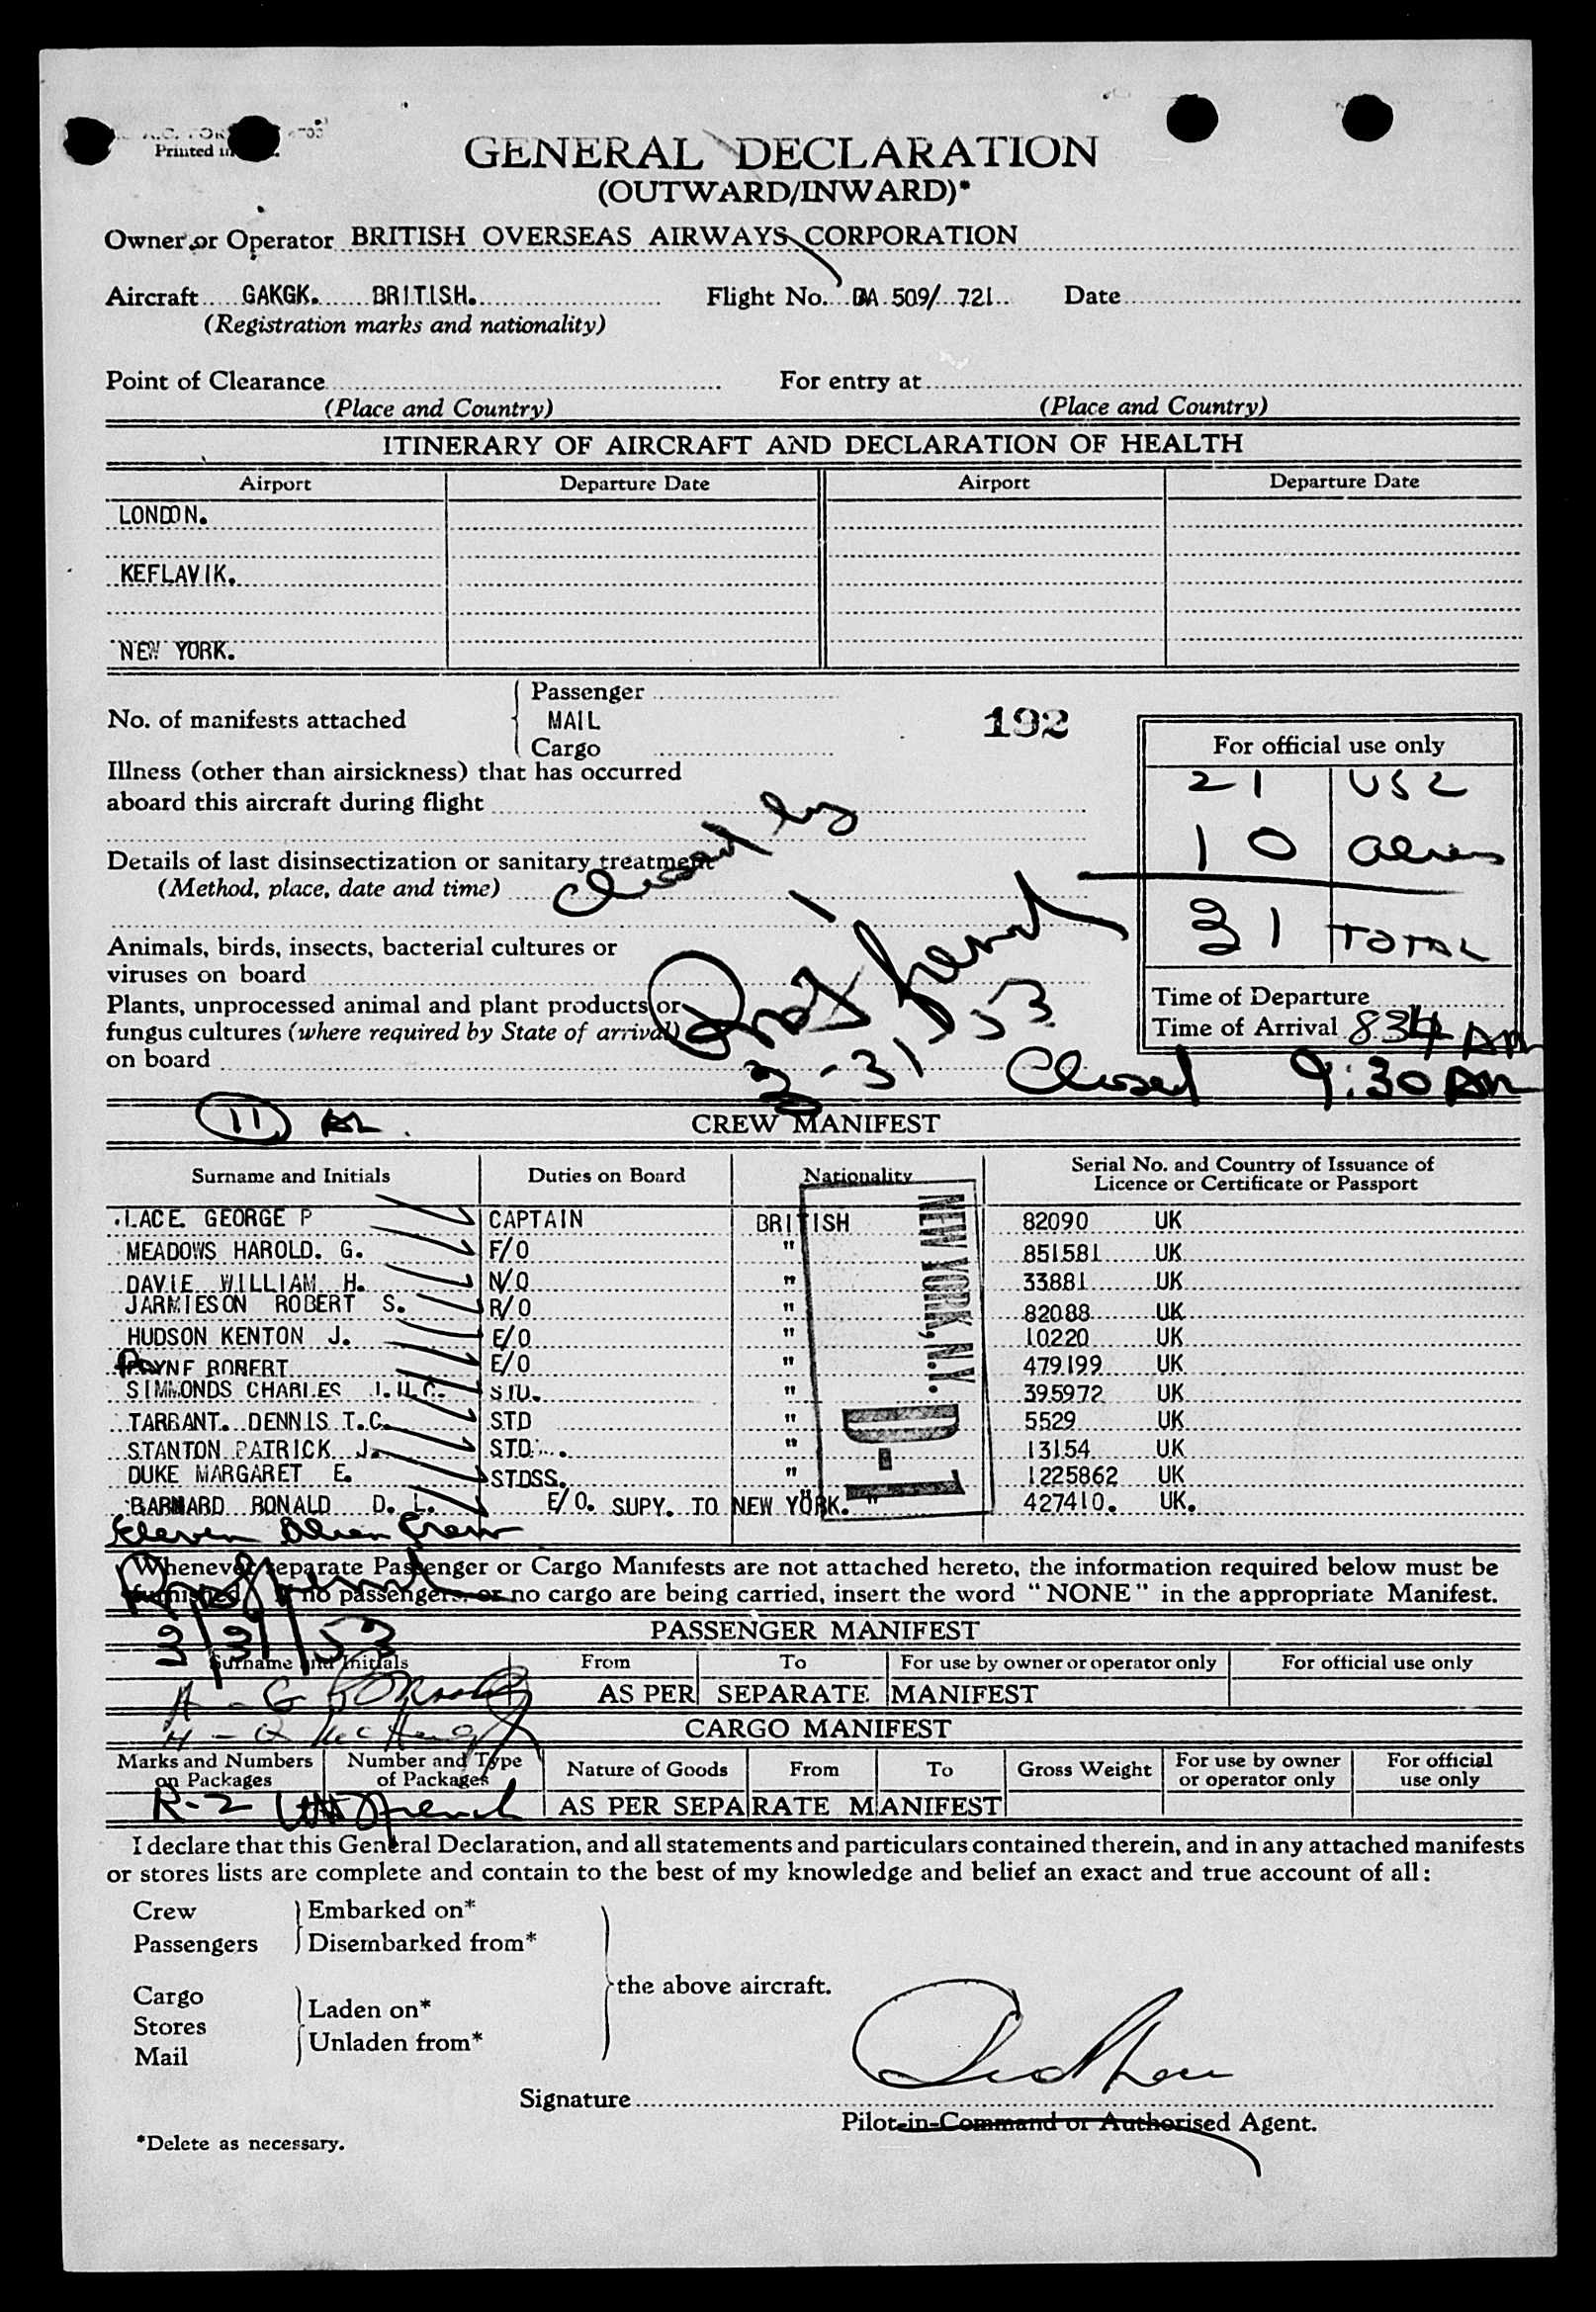 Printed in
GENERAL DECLARATION
(OUTWARD/INWARD)*
Owner or Operator BRITISH OVERSEAS AIRWAYS CORPORATION
Aircraft GAKGK. BRITISH. Flight No. BA 509/ 721 Date
(Registration marks and nationality)
Point of Clearance For entry at
(Place and Country) (Place and Country)
ITINERARY OF AIRCRAFT AND DECLARATION OF HEALTH
Airport Departure Date Airport Departure Date
LONDON.
KEFLAVIK.
NEW YORK.
No. of manifests attached
Passenger
MAIL
Cargo
192
For official use only
21 USC
10 Aliens
31 TOTAL
Time of Departure
Time of Arrival 8.34 AM
Illness (other than airsickness) that has occurred
aboard this aircraft during flight
Details of last disinsectization or sanitary treatment
(Method, place, date and time)
Animals, birds, insects, bacterial cultures or
viruses on board
Plants, unprocessed animal and plant products or
fungus cultures (where required by State of arrival)
on board
Cleared by
3-31-53
Closed 9:30 AM
11
CREW MANIFEST
Surname and Initials Duties on Board Nationality Serial No. and Country of Issuance of
Licence or Certificate or Passport
LACE. GEORGE P CAPTAIN BRITISH 82090 UK
MEADOWS HAROLD. G. F/O " 851581 UK
DAVIE WILLIAM H. N/O " 33881 UK
JARMIESON ROBERT S. R/O " 82088 UK
HUDSON KENTON J. E/O " 10220 UK
PAYNE ROBERT E/O " 479199 UK
SIMMONDS CHARLES STD. " 395972 UK
TARRANT. DENNIS T.C. STD " 5529 UK
STANTON PATRICK J. STD. " 13154 UK
DUKE MARGARET E. STDSS. " 1225862 UK
BARNARD RONALD D. L. E/O. SUPY. TO NEW YORK. " 427410. UK.
NEW YORK, N.Y.
D-1
Eleven Alien Crew
Whenever separate Passenger or Cargo Manifests are not attached hereto, the information required below must be
furnished. If no passengers or no cargo are being carried, insert the word "NONE" in the appropriate Manifest.
3/31/53
PASSENGER MANIFEST
Surname and Initials From To For use by owner or operator only For official use only
AS PER SEPARATE MANIFEST
CARGO MANIFEST
Marks and Numbers on Packages Number and Type of Packages Nature of Goods From To Gross Weight For use by owner or operator only For official use only
R-2 AS PER SEPARATE MANIFEST
I declare that this General Declaration, and all statements and particulars contained therein, and in any attached manifests
or stores lists are complete and contain to the best of my knowledge and belief an exact and true account of all:
Crew
Passengers
Embarked on*
Disembarked from*
Cargo
Stores
Mail
Laden on*
Unladen from*
the above aircraft.
Signature
Pilot-in-Command or Authorised Agent.
*Delete as necessary.